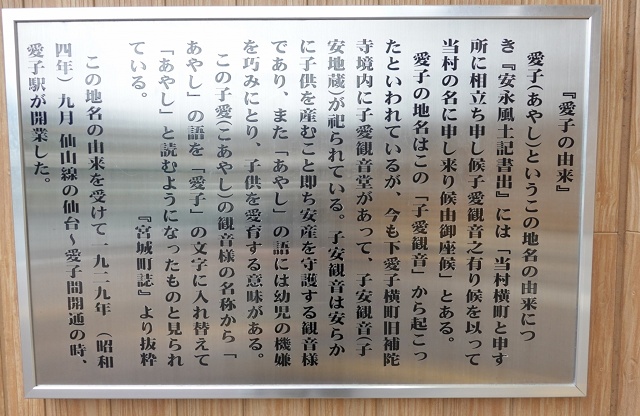 『愛子の由来』
愛子(あやし)というこの地名の由来につ
き『安永風土記書出』には「当村横町と申す
所に相立ち申し候子愛観音之有り候を以って
当村の名に申し来り候由御座候」とある。
愛子の地名はこの「子愛観音」から起こっ
たといわれているが、今も下愛子横町旧補陀
寺境内に子愛観音堂があって、子安観音(子
安地蔵)が祀られている。子安観音は安らか
に子供を産むこと即ち安産を守護する観音様
であり、また「あやし」の語には幼児の機嫌
を巧みにとり、子供を愛育する意味がある。
この子愛(こあやし)の観音様の名称から「
あやし」の語を「愛子」の文字に入れ替えて
「あやし」と読むようになったものと見られ
ている。
『宮城町誌』より抜粋
この地名の由来を受けて一九二九年(昭和
四年)九月仙山線の仙台～愛子間開通の時、
愛子駅が開業した。